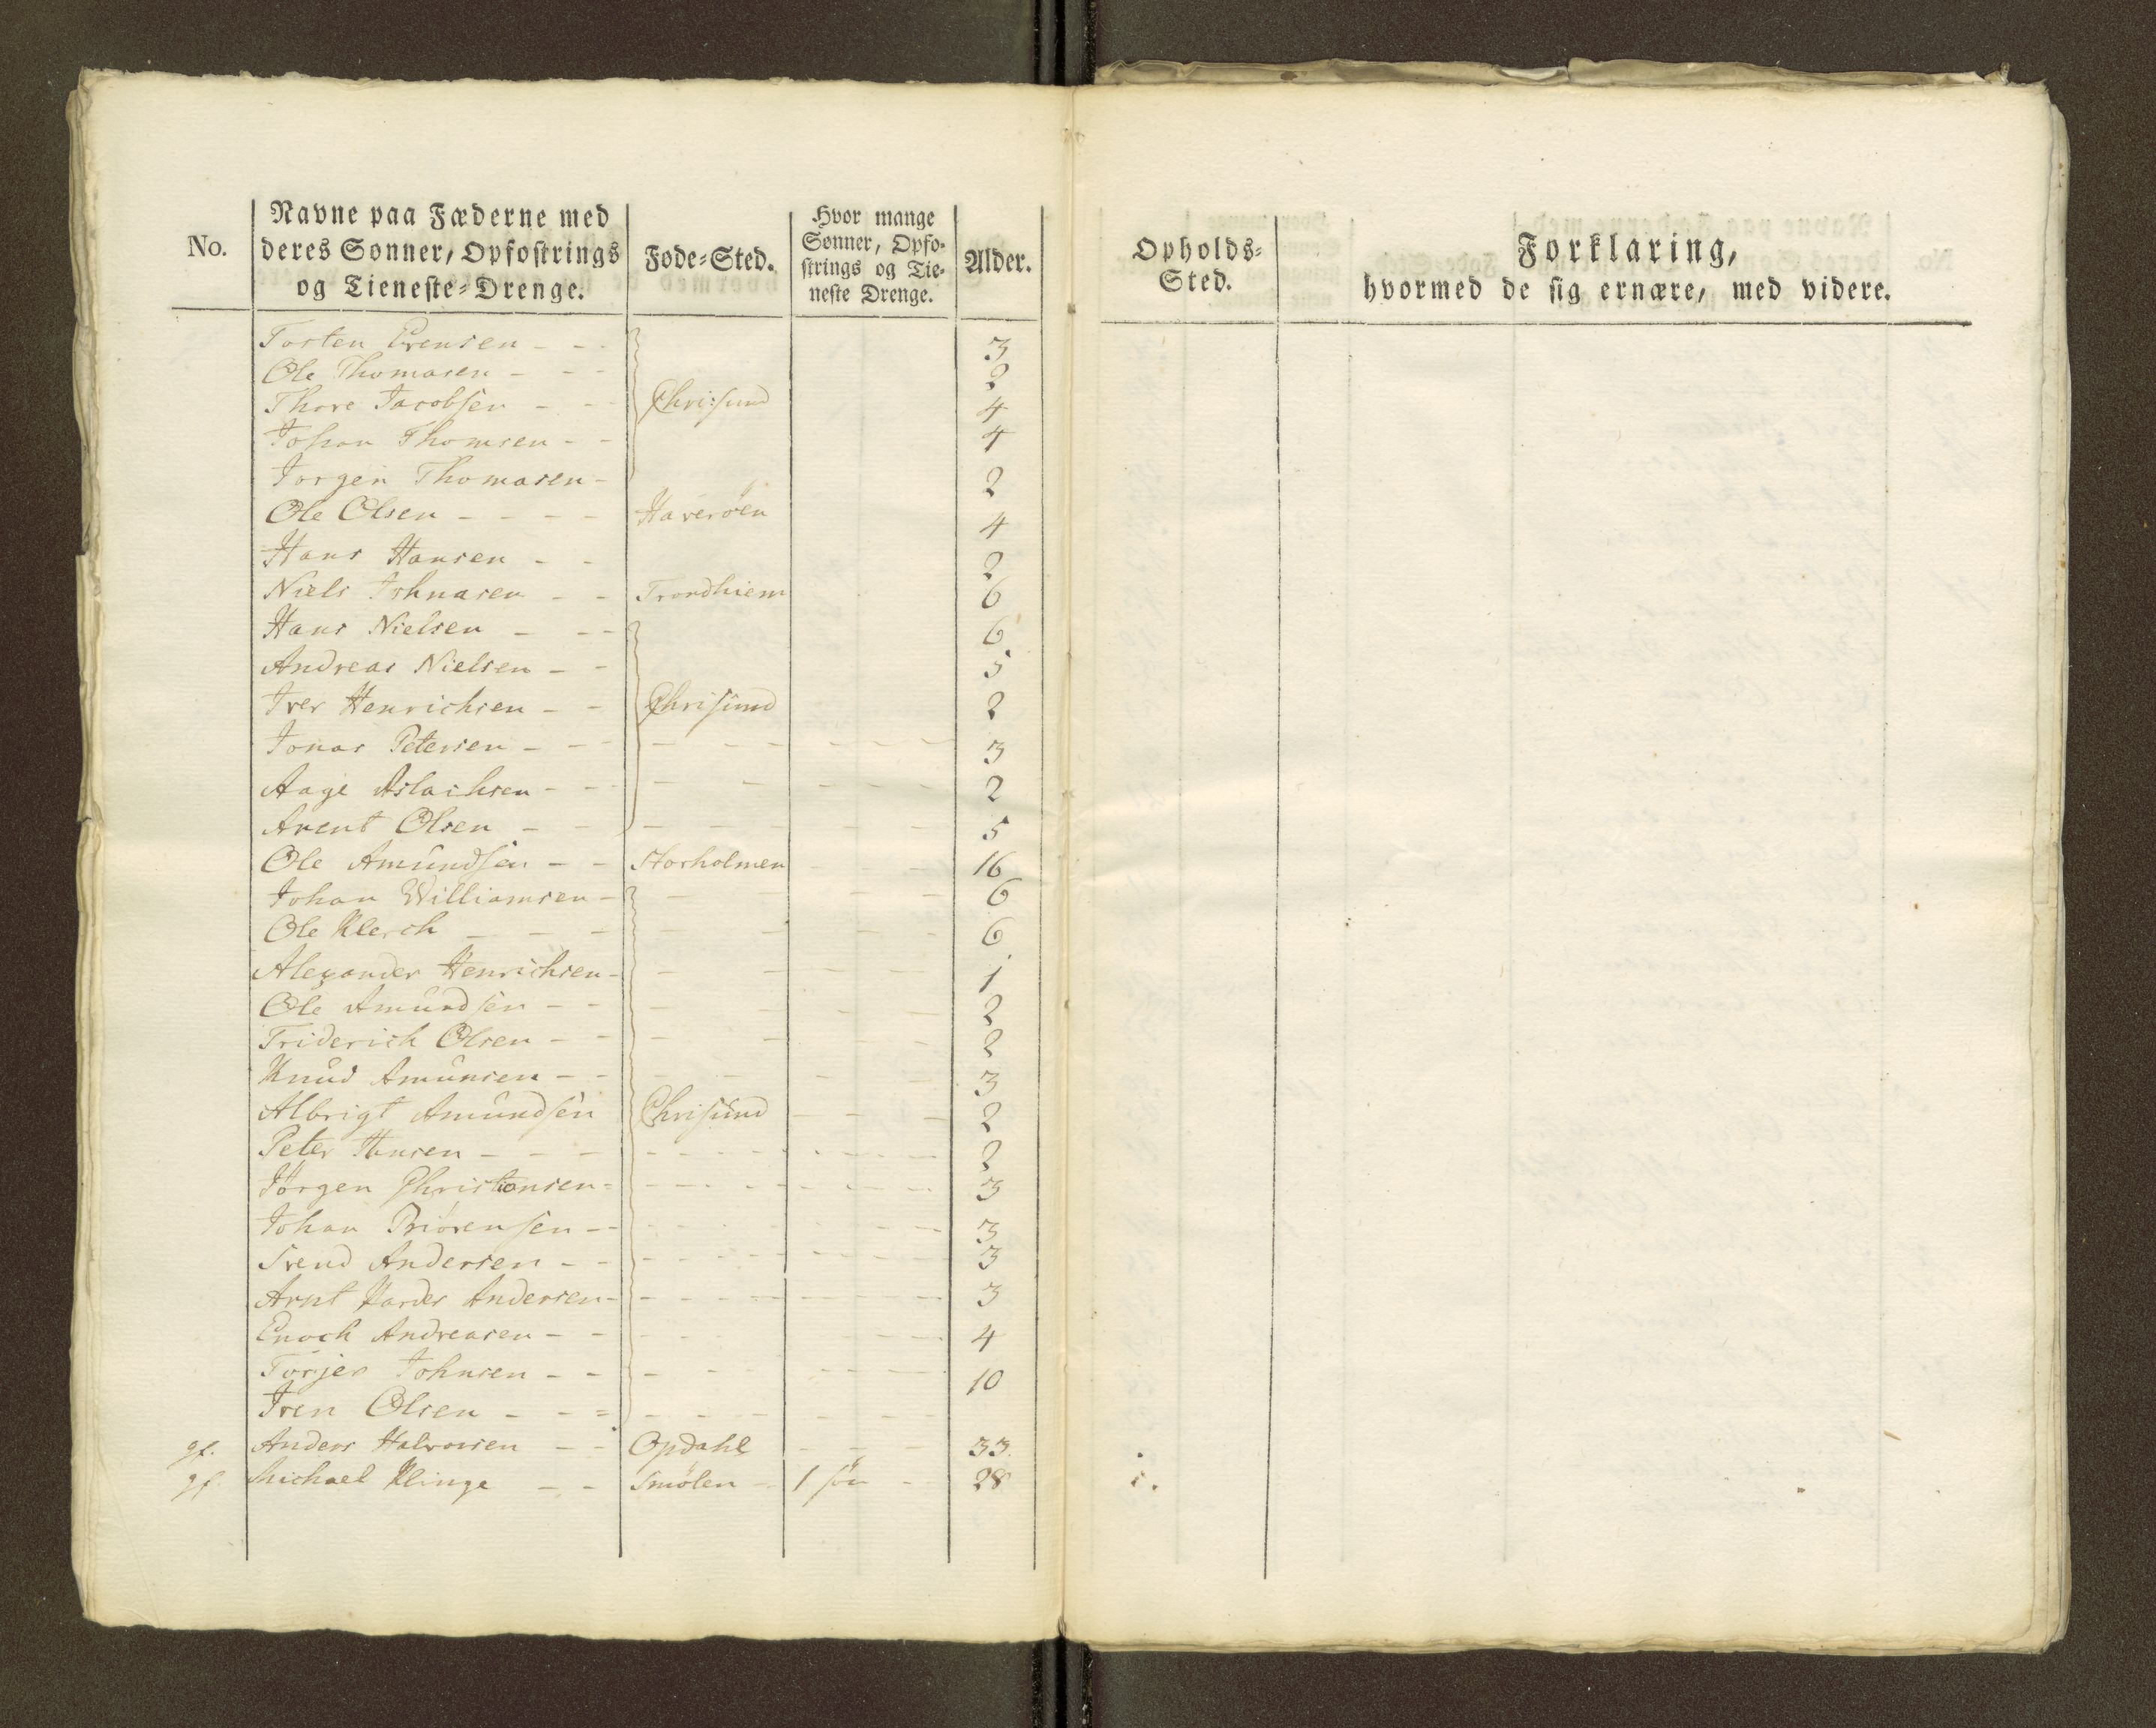 No.
Navne paa Fæderne med deres Sønner, Opfostrings og Tieneste-Drenge.
Føde-Sted.
Hvor mange Sønner, Opfostrings og Tieneste Drenge.
Alder.
Opholds-Sted.
Forklaring, hvormed de sig ernære, med videre.
Torsten Evensen - - - 3
Ole Thomasen - - - 2
Thore Jacobsen - - - Chri:sund 4
Johan Thomsen - - 4
Jørgen Thomasen - 2
Ole Olsen - - - - Haverøen 4
Hans Hansen - - 2
Niels Johnasen - - Trondhiem 6
Hans Nielsen - - - 6
Andreas Nielsen - - 5
Iver Henrichsen - - Chrisund 2
Jonas Petersen - - - 3
Aage Aslachsen - - - 2
Arent Olsen - - 5
Ole Amundsen - - Storholmen 16
Johan Williamsen - 6
Ole Klerch - - - 6
Alexander Henrichsen - 1
Ole Amundsen - - 2
Friderich Olsen - - 2
Knud Amunsen - - 3
Albrigt Amundsen Chrisund 2
Peter Hansen - - - 2
Jørgen Christiansen - 3
Johan Sørensen - - 3
Svend Andersen - - 3
Arnt Andersen - 3
Enoch Andreasen - - 4
Torjer Johnsen - - 10
Iven Olsen - - =
gf. Anders Halvorsen - - Opdahl 33
gf. Michael Klinge - - Smølen - 1 søn - 28